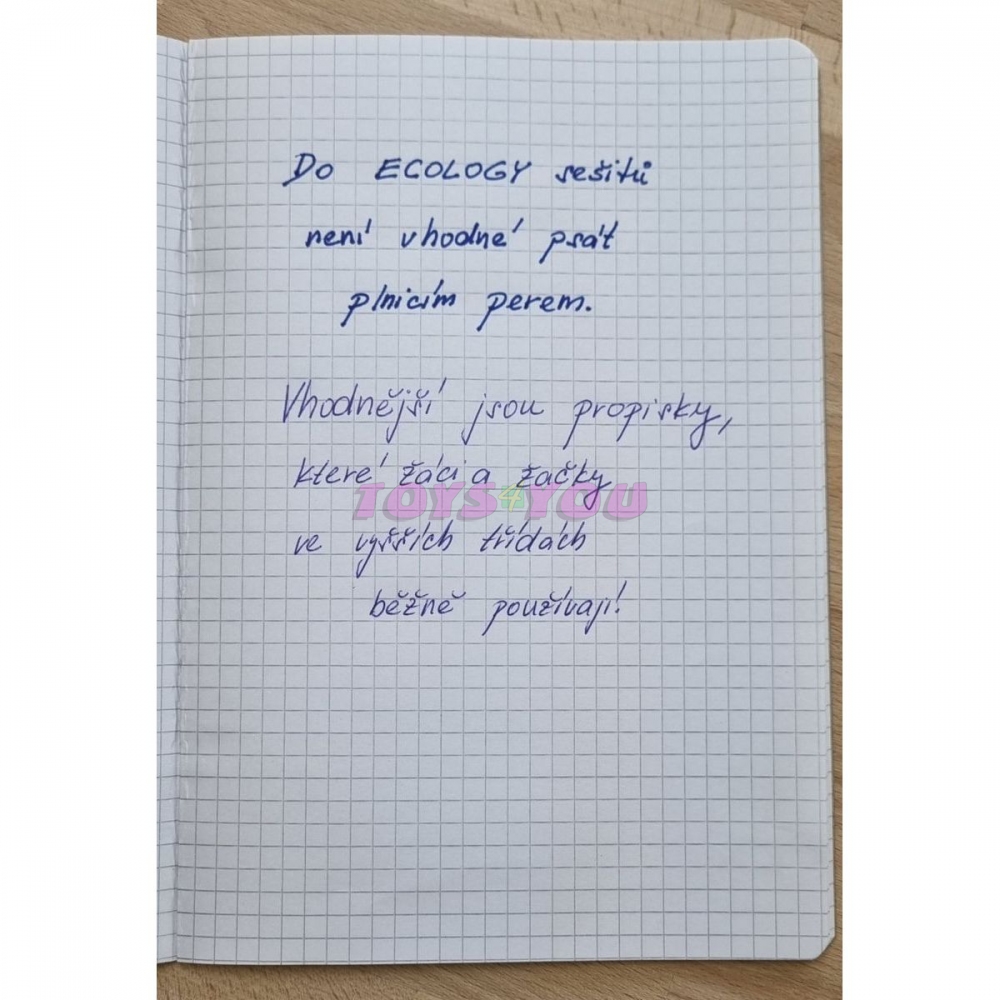 Do ECOLOGY sešitů
není vhodné psát
plnicím perem.
Vhodnější jsou propisky,
které žáci a žačky
TOYS4YOU
ve vyšších třídách
běžně používají!